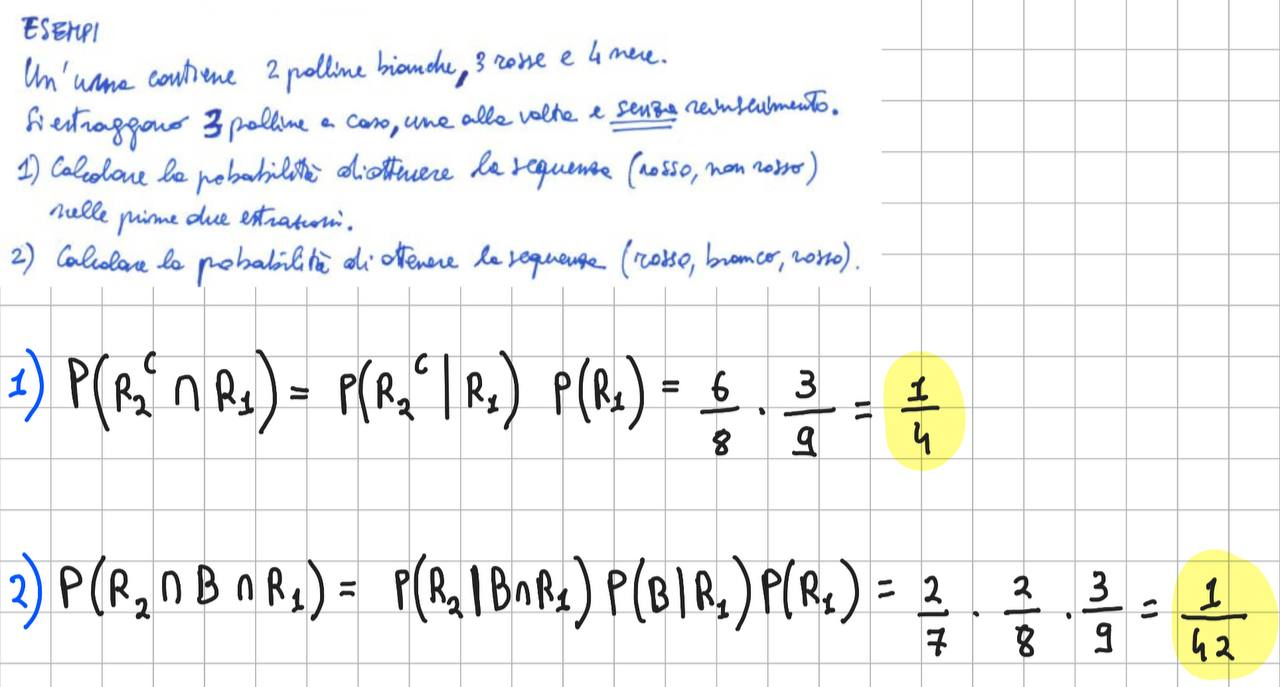 ESEMPI
Un'urna contiene 2 palline bianche, 3 rosse e 4 nere.
Si estraggono 3 palline a caso, una alla volta e senza reinserimento.
1) Calcolare la probabilità di ottenere la sequenza (rosso, non rosso)
nelle prime due estrazioni.
2) Calcolare la probabilità di ottenere la sequenza (rosso, bianco, rosso).
1) P(R₂ᶜ ∩ R₁) = P(R₂ᶜ | R₁) P(R₁) = 6/8 · 3/9 = 1/4
2) P(R₂ ∩ B ∩ R₁) = P(R₂ | B ∩ R₁) P(B | R₁) P(R₁) = 2/7 · 2/8 · 3/9 = 1/42